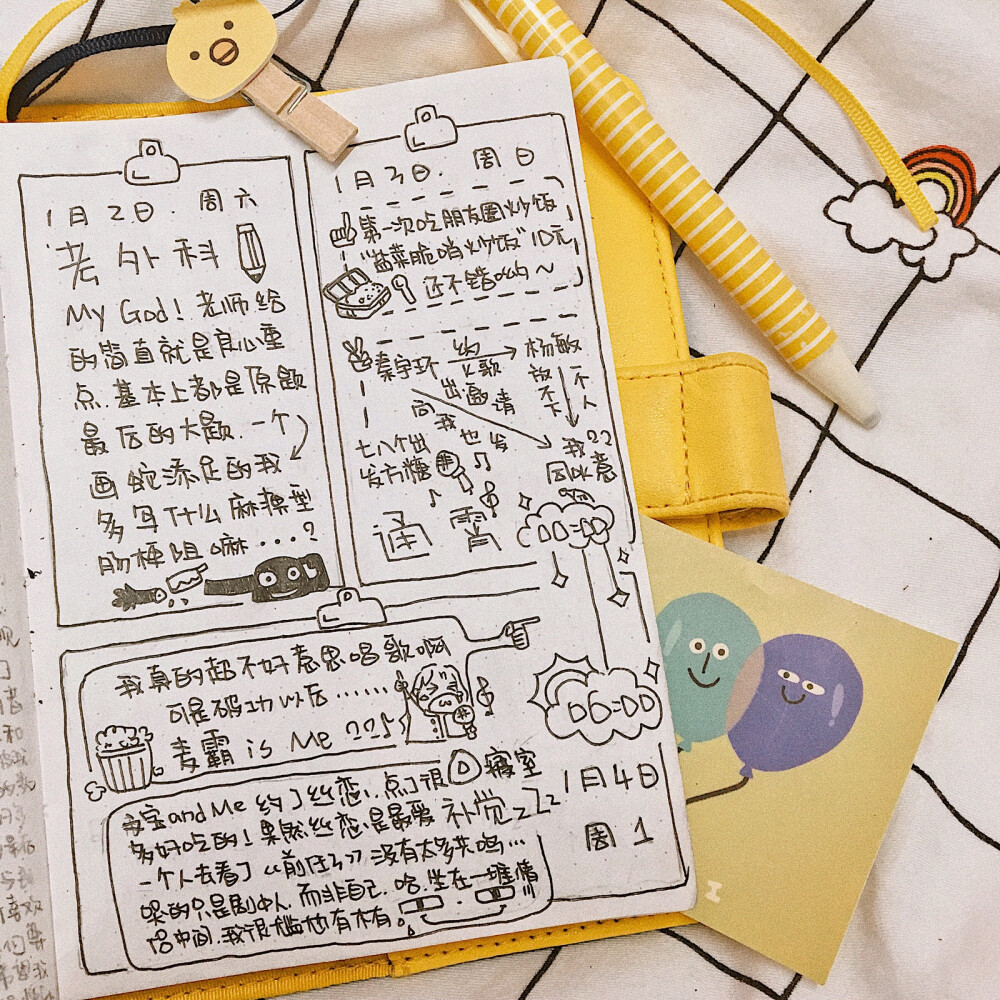 1月2日.周六
老外科
My God!老师给
的简直就是良心重
点.基本上都是原题
最后的大题.一个
画蛇添足的我
多写什么麻痹型
肠梗阻嘛....?
1月3日.周日
第一次吃朋友圈炒饭
"盐菜脆哨炒饭"10元
还不错哟~
秦宇环 约K歌 杨敏
放不下 不人
出邀请
向我也发
七八个出
发方糖
我??
因此意
通宵
00:00
我真的超不好意思唱歌啊
可是码功以后......
麦霸 is Me ???
06:00
寝室
补觉zzz
1月4日
周1
安宝and Me 约了丝恋,点了很
多好吃的!果然丝恋是最爱
一个人去看了《前任3》没有太多来鸣...
哭的只是剧中人,而非自己.哈.坐在一堆情
侣中间.我很尴尬有木有。